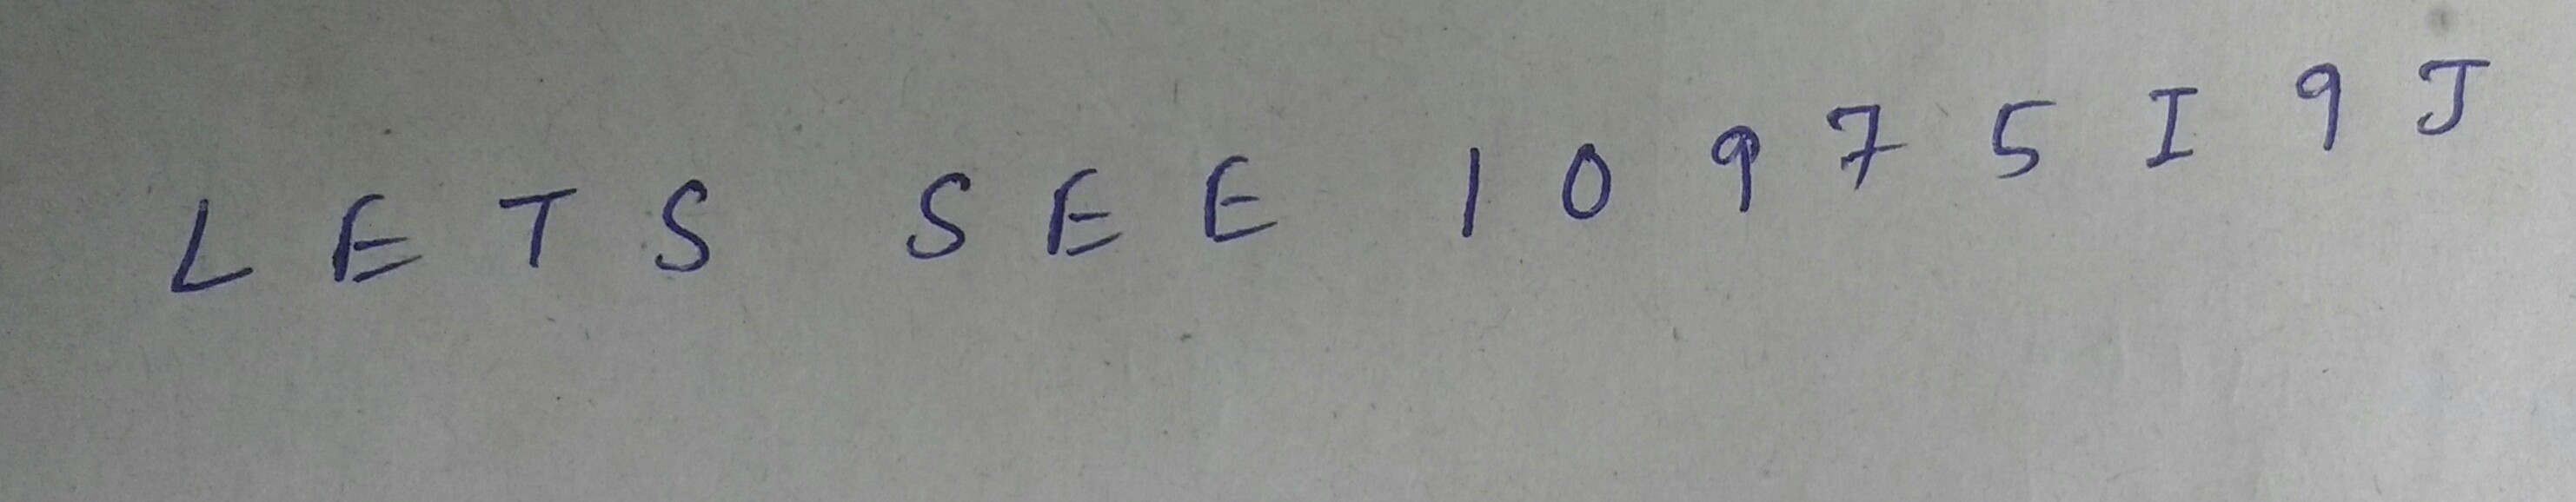 LETS SEE 10975I9J